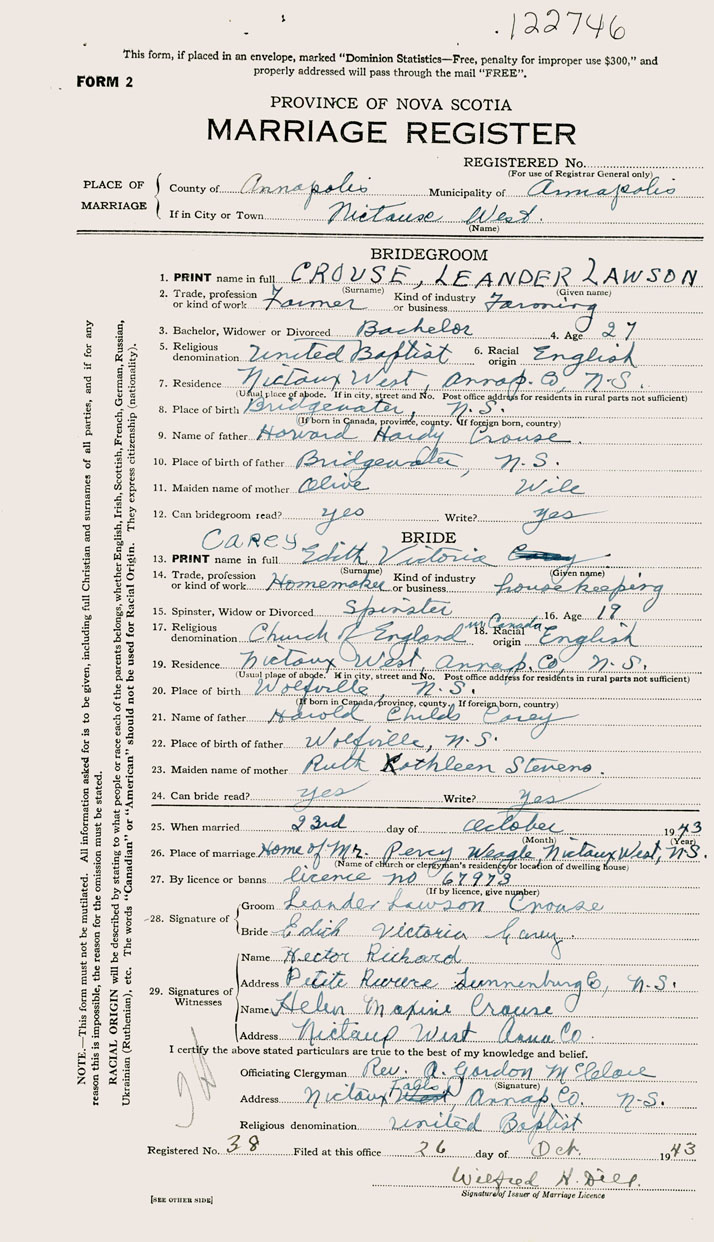 .122746
This form, if placed in an envelope, marked “Dominion Statistics—Free, penalty for improper use $300,” and
properly addressed will pass through the mail “FREE”.
FORM 2
PROVINCE OF NOVA SCOTIA
MARRIAGE REGISTER
REGISTERED No.
(For use of Registrar General only)
PLACE OF MARRIAGE
County of Annapolis Municipality of Annapolis
If in City or Town Nictause West.
(Name)
BRIDEGROOM
1. PRINT name in full CROUSE, LEANDER LAWSON
(Surname) (Given name)
2. Trade, profession or kind of work Farmer Kind of industry or business Farming
3. Bachelor, Widower or Divorced Bachelor 4. Age 27
5. Religious denomination United Baptist 6. Racial origin English
7. Residence Nictaux West, Annap. Co, N.S.
(Usual place of abode. If in city, street and No. Post office address for residents in rural parts not sufficient)
8. Place of birth Bridgewater, N.S.
(If born in Canada, province, county. If foreign born, country)
9. Name of father Howard Hardy Crouse.
10. Place of birth of father Bridgewater, N.S.
11. Maiden name of mother Olive Wile
12. Can bridegroom read? yes Write? yes
BRIDE
CAREY
13. PRINT name in full Edith Victoria
(Surname) (Given name)
14. Trade, profession or kind of work Homemaker Kind of industry or business housekeeping
15. Spinster, Widow or Divorced Spinster 16. Age 19
17. Religious denomination Church of England in Canada 18. Racial origin English
19. Residence Nictaux West, Annap. Co, N.S.
(Usual place of abode. If in city, street and No. Post office address for residents in rural parts not sufficient)
20. Place of birth Wolfville, N.S.
(If born in Canada, province, county. If foreign born, country)
21. Name of father Harold Childs Carey
22. Place of birth of father Wolfville, N.S.
23. Maiden name of mother Ruth Kathleen Stevens.
24. Can bride read? yes Write? Yes
25. When married 23rd day of October 1943
(Month) (Year)
26. Place of marriage Home of Mr. Percy Weagle, Nictaux West, N.S.
(Name of church or clergyman's residence or location of dwelling house)
27. By licence or banns licence no 67973
(If by licence, give number)
28. Signature of
Groom Leander Lawson Crouse
Bride Edith Victoria Carey.
29. Signatures of Witnesses
Name Hector Richard
Address Petite Riviere Lunnenburg Co, N.S.
Name Helen Maxine Crouse
Address Nictaux West Anna Co.
I certify the above stated particulars are true to the best of my knowledge and belief.
Officiating Clergyman Rev. A. Gordon
(Signature)
Address Nictaux Falls, Annap. Co. N.S.
Religious denomination United Baptist
Registered No. 38 Filed at this office 26 day of Oct. 1943
Wilfred H. Dill.
Signature of Issuer of Marriage Licence
[SEE OTHER SIDE]
NOTE.—This form must not be mutilated. All information asked for is to be given, including full Christian and surnames of all parties, and if for any
reason this is impossible, the reason for the omission must be stated.
RACIAL ORIGIN will be described by stating to what people or race each of the parents belongs, whether English, Irish, Scottish, French, German, Russian,
Ukrainian (Ruthenian), etc. The words “Canadian” or “American” should not be used for Racial Origin. They express citizenship (nationality).